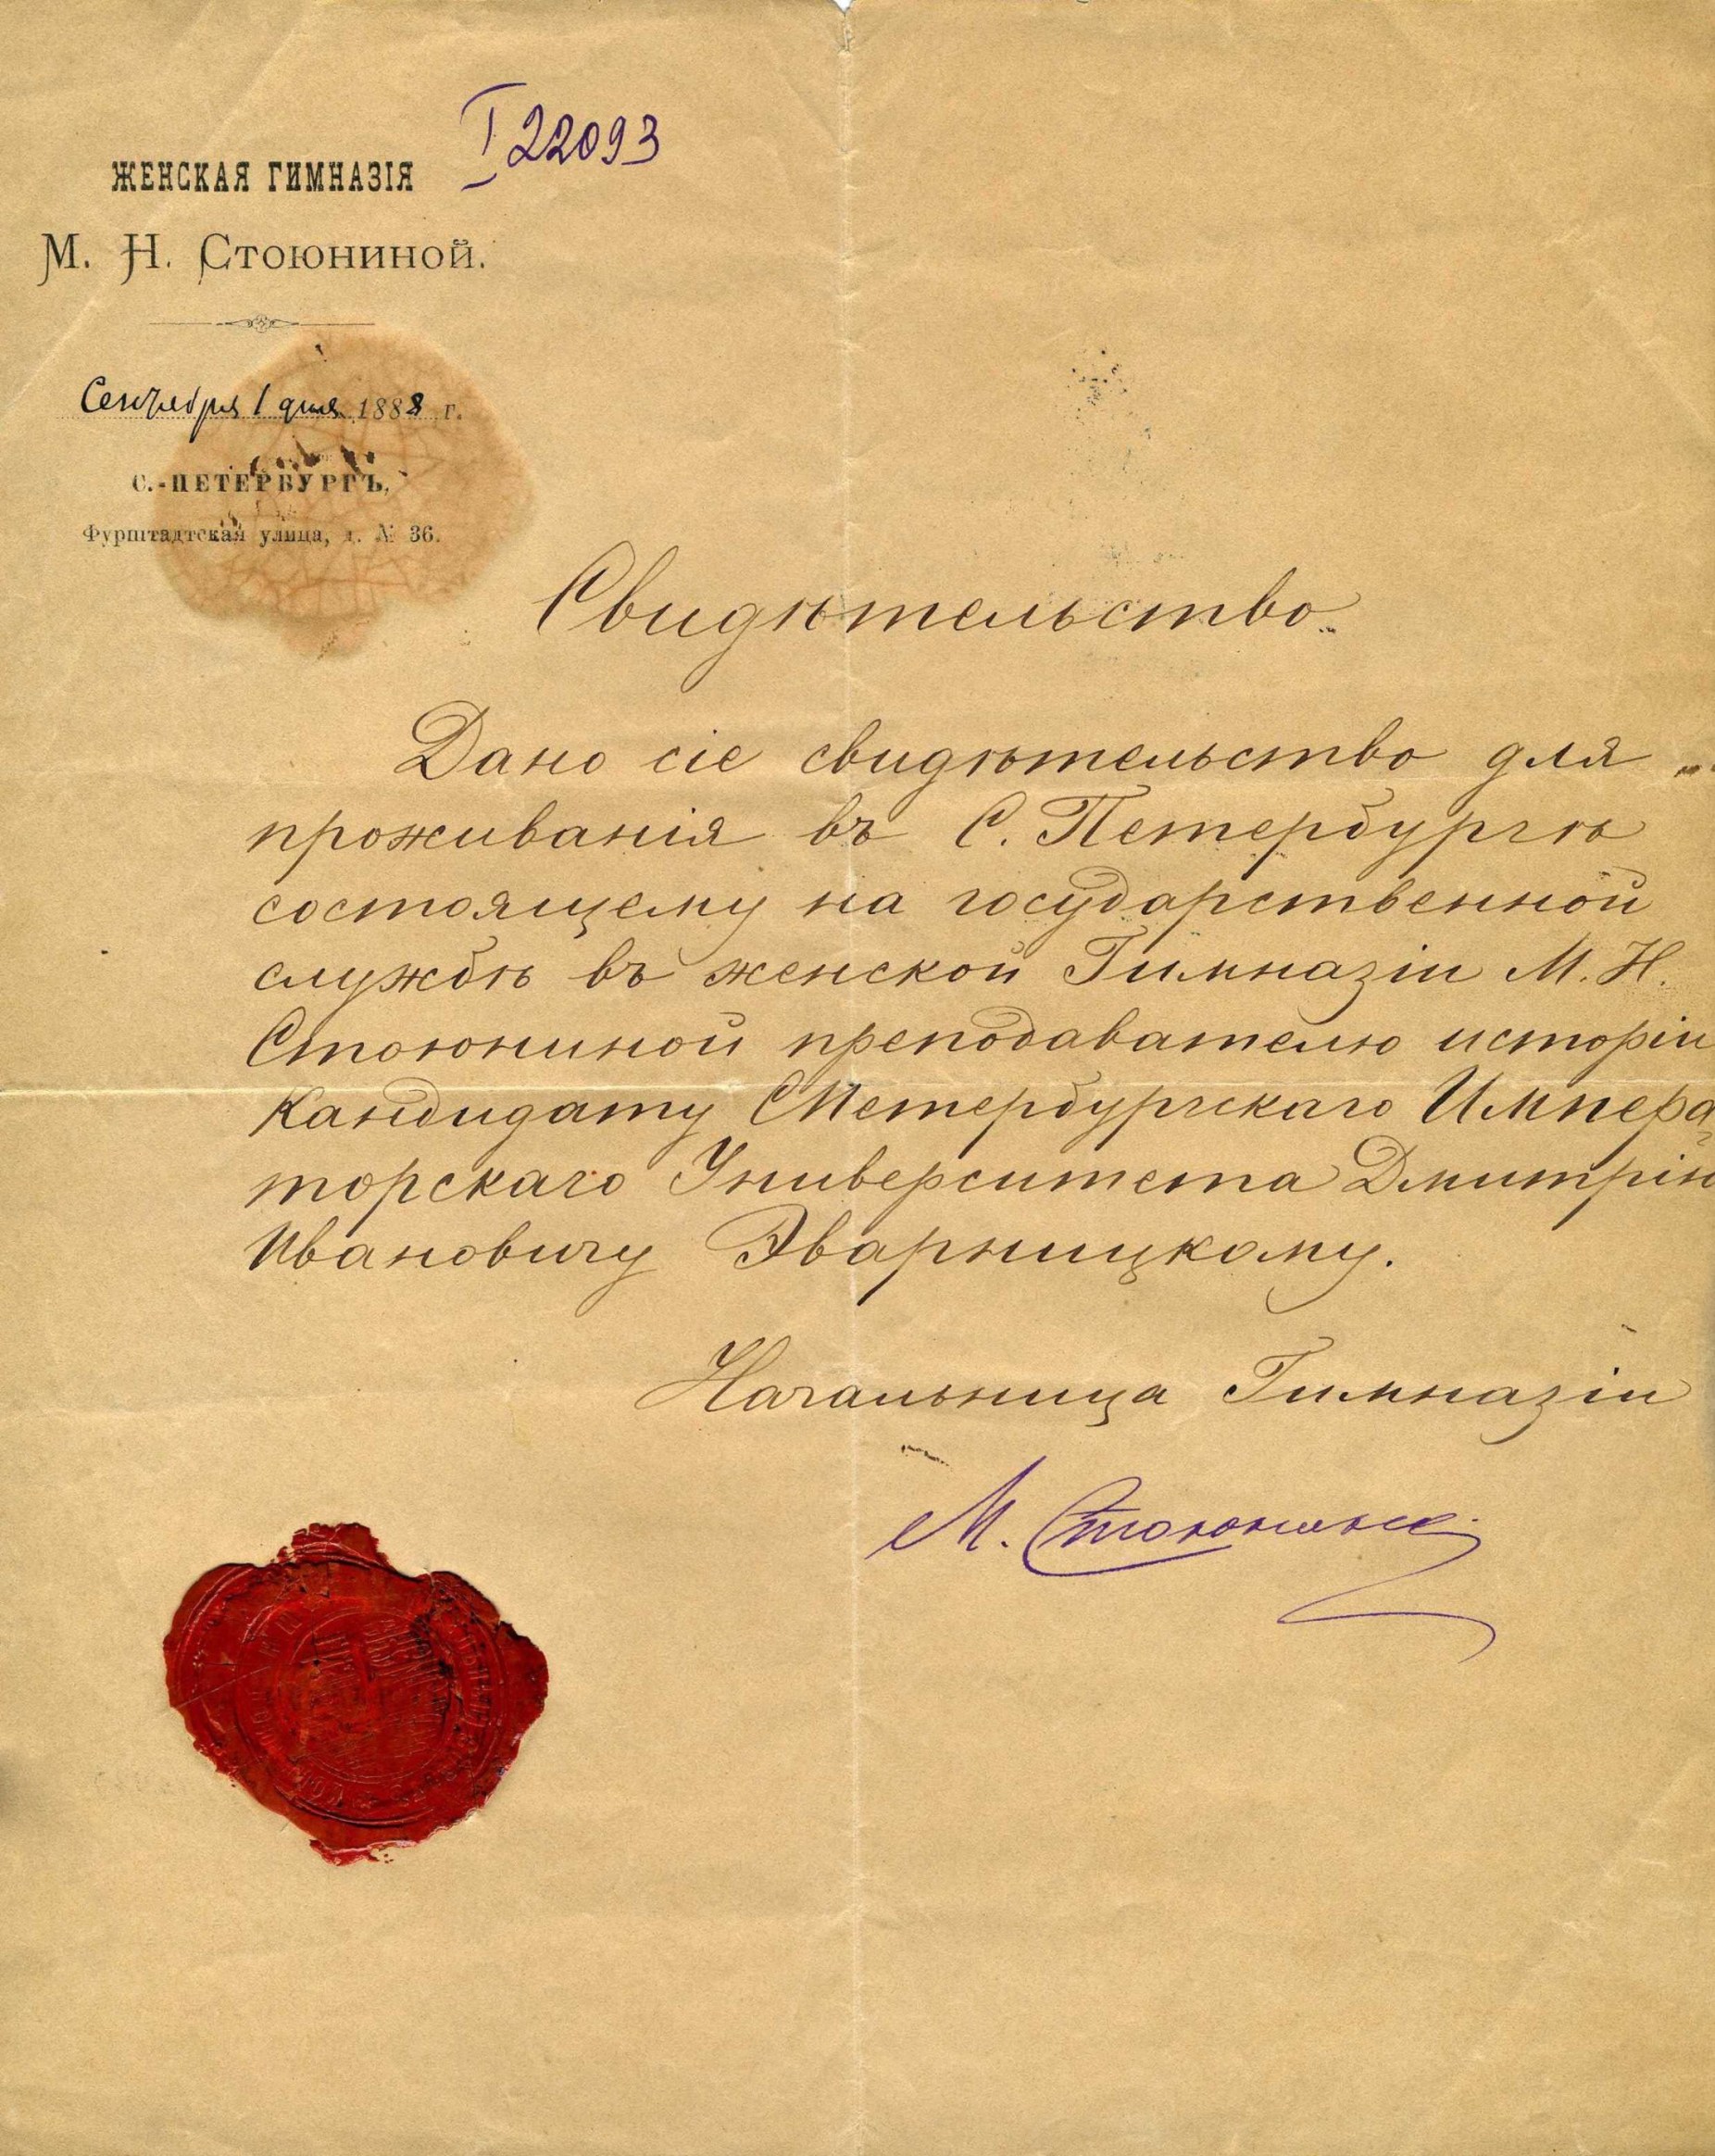 I 22093
ЖЕНСКАЯ ГИМНАЗІЯ
М. Н. Стоюниной.
Сентября 1 дня 1888 г.
С.-ПЕТЕРБУРГЪ,
Фурштадтская улица, д. № 36.
Свидѣтельство.
Дано сіе свидѣтельство для
проживанія въ С. Петербургѣ
состоящему на государственной
службѣ въ женской Гимназіи М. Н.
Стоюниной преподавателю исторіи
Кандидату СПетербургскаго Импера-
торскаго Университета Дмитрію
Ивановичу Эварницкому.
Начальница Гимназіи
М. Стоюнина